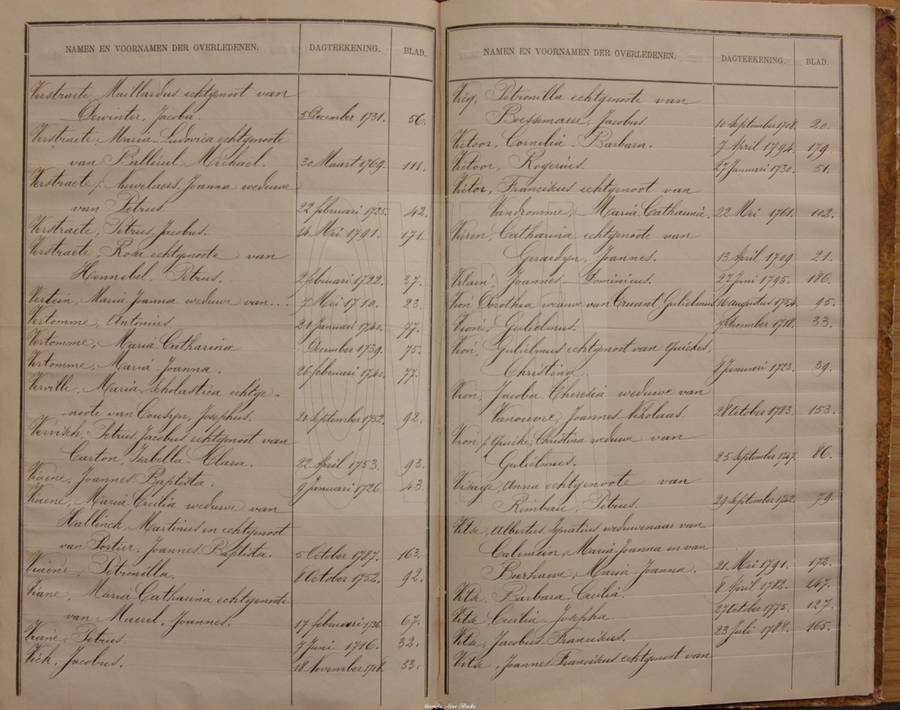 NAMEN EN VOORNAMEN DER OVERLEDENEN. DAGTEEKENING. BLAD.
Verstraete Maillardus echtgenoot van
Dewinter, Jacoba. 5 December 1731. 56.
Verstraete, Maria Ludovica echtgenoote
van Belleind Michael. 30 Maart 1769. 111.
Verstraete, Nuvelaers, Joanna weduwe
van Petrus. 22 februari 1725. 42.
Verstraete, Petrus, Jacobus. 14 Mei 1791. 171.
Verstraete, Rosa echtgenoote van
Hennebel, Petrus. 2 februari 1722. 37.
Verstein, Maria Joanna weduwe van ... 7 Mei 1710. 23.
Vertomme, Antonius. 21 Januari 1740. 77.
Vertomme, Maria Catharina December 1739. 75.
Vertomme, Maria Joanna. 26 februari 1740. 77.
Maria Scholastica echtge-
noote van Cousyn, Josephus. 21 September 1752. 92.
Vervisch, Petrus Jacobus echtgenoot van
Carton, Isabella Clara. 22 April 1753. 93.
Viaene, Joannes Baptista. 9 Januari 1726. 43.
Viaene, Maria Cecilia weduwe van
Hallinck, Martinus en echtgenoot
van Portier, Joannes Baptista. 5 October 1787. 163.
Viaene, Petronilla. 8 October 1752. 92.
Viane, Maria Catharina echtgenoote
van Joannes. 17 februari 1736 67.
Viane, Petrus 7 Juni 1716. 32.
Vick, Jacobus. 18 November 1716. 33.
NAMEN EN VOORNAMEN DER OVERLEDENEN. DAGTEEKENING. BLAD.
Petronilla echtgenoote van
Jacobus. 10 September 1708. 20.
Victoor, Cornelia Barbara. 7 April 1794. 179.
Victoor, Rogerius. 27 Januari 1730. 51.
Victor, Franciskus echtgenoot van
Vandromme, Maria Catharina. 22 Mei 1761. 102.
Vieren, Catharina echtgenoote van
Gerardyn, Joannes. 13 April 1709 21.
Vilain, Joannes Dominicus. 27 Juni 1795. 186.
Vion Dorothea weduwe van Gulielmus 16 augustus 1794. 95.
Vion, Gulielmus. December 1718. 33.
Vion, Gulielmus echtgenoot van Quickes,
Christina. 8 Januari 1723. 39.
Vion, Jacoba Theresia weduwe van
Joannes Nikolaas 28 October 1783. 153.
Vion / Quicke, Christina weduwe van
Gulielmus. 25 September 1747. 86.
Visage, Anna echtgenoote van
Rimbau, Petrus. 29 September 1742. 79.
Vitse, Albertus Ignatius weduwenaar van
Maria Joanna en van
Maria Joanna. 21 Mei 1791. 172.
Vitse, Barbara Cecilia. 8 April 1782. 247.
Vitse, Cecilia Josepha 27 October 1775. 127.
Vitse, Jacobus Franciskus. 23 Juli 1788. 165.
Vitse, Joannes Franciskus echtgenoot van